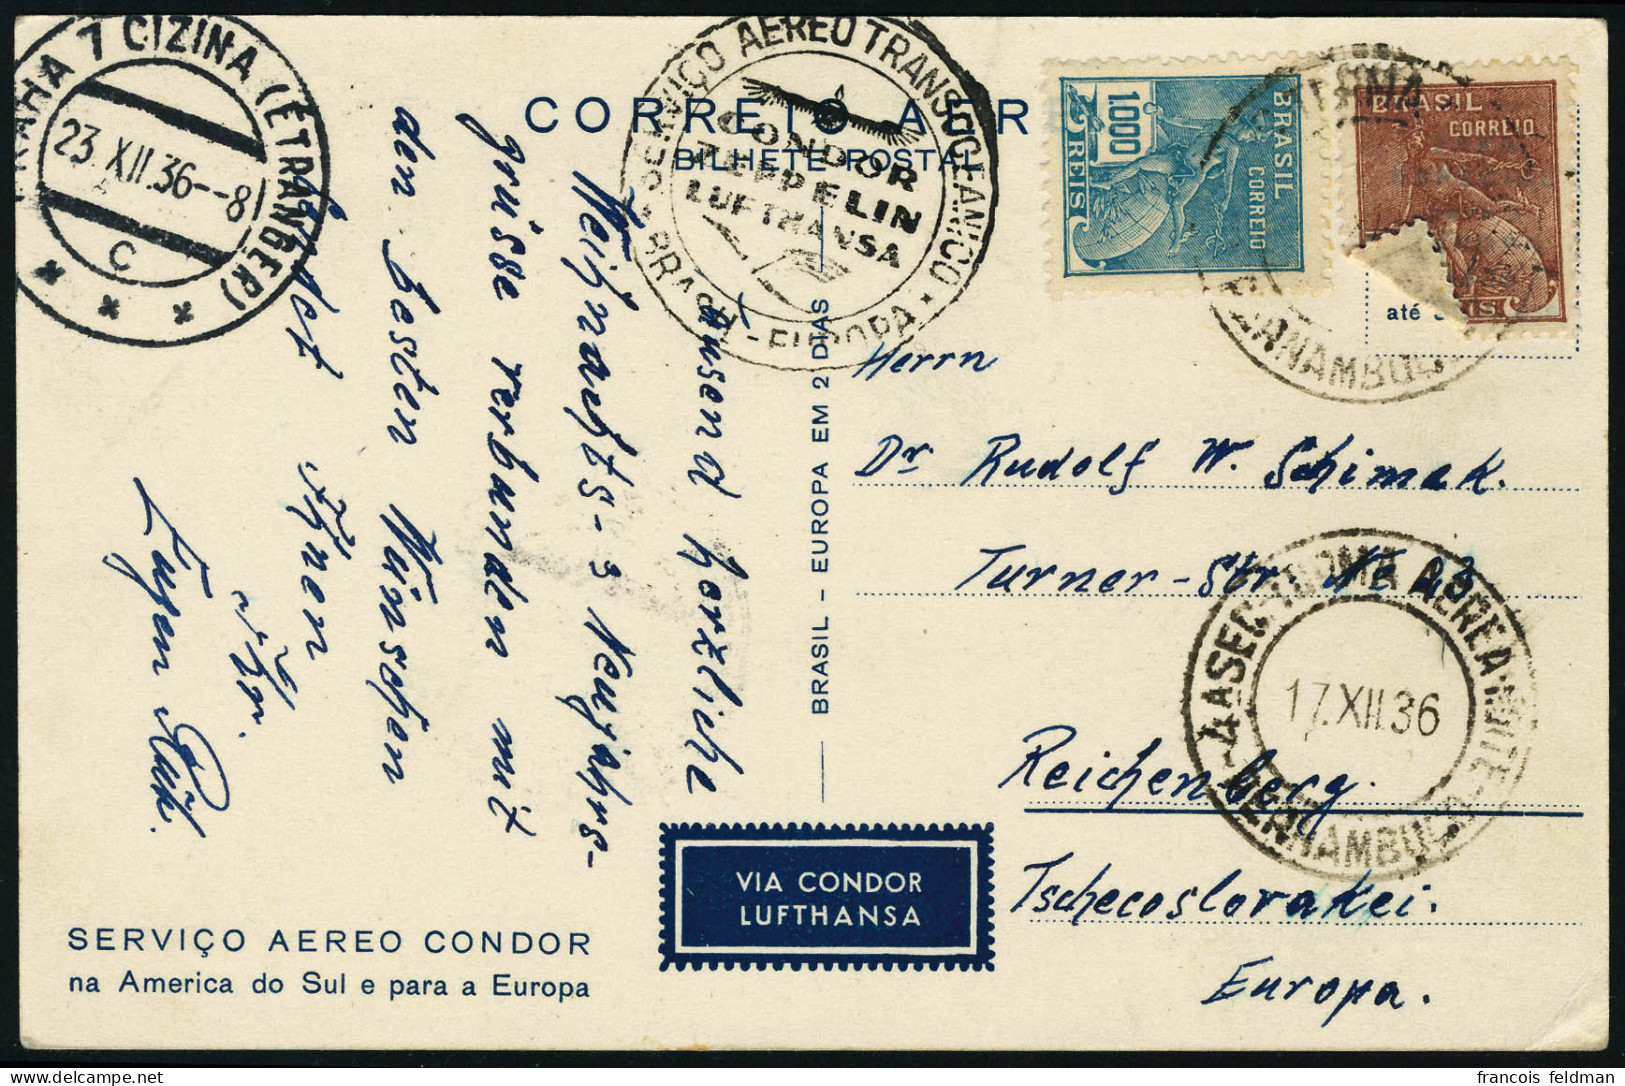 PRAHA 7 CIZINA (ÉTRANGER)
23.XII.36--8
C
SERVIÇO AEREO TRANSOCEANICO
CONDOR
ZEPPELIN
LUFTHANSA
BRASIL-EUROPA
CORREIO AER
BILHETE POSTAL
1.000
REIS
BRASIL
CORREIO
BRASIL
CORREIO
IS.
até
PERNAMBUCO
Tausend herzliche
Weihnachts- & Neujahrs-
grüsse verbunden mit
den besten Wünschen
sendet Ihnen
Ihr
Eugen
BRASIL - EUROPA EM 2 DIAS
Herrn
Dr Rudolf W. Schimak.
Turner-Str. No
Reichenberg.
Tschecoslovakei.
Europa.
4A SEC-TURMA AEREA-NOITE-
17.XII.36
PERNAMBUCO
VIA CONDOR
LUFTHANSA
SERVIÇO AEREO CONDOR
na America do Sul e para a Europa
francois feldman